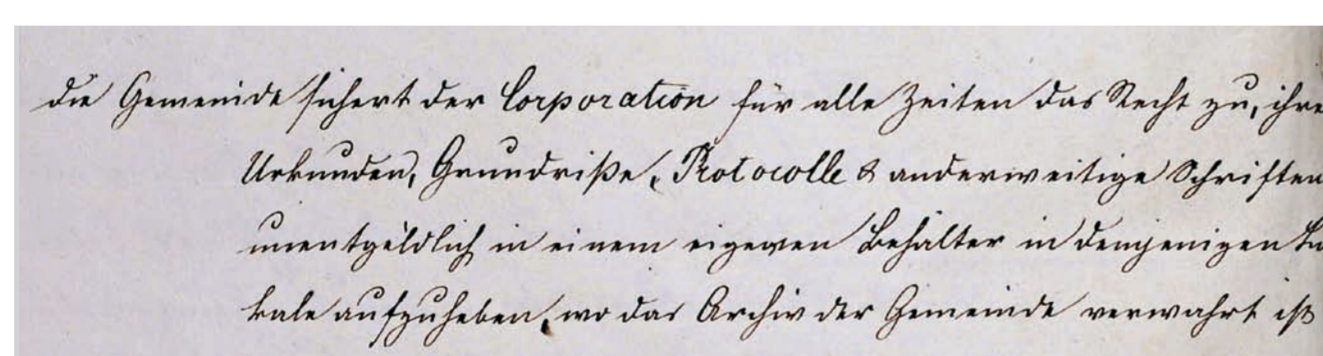 die Gemeinde sichert der Corporation für alle Zeiten das Recht zu, ihre
Urkunden, Grundriße, Protocolle & anderweitige Schriften
unentgeldlich in einem eigenen Behälter in demjenigen Lo
kale aufzuheben, wo das Archiv der Gemeinde verwahrt ist